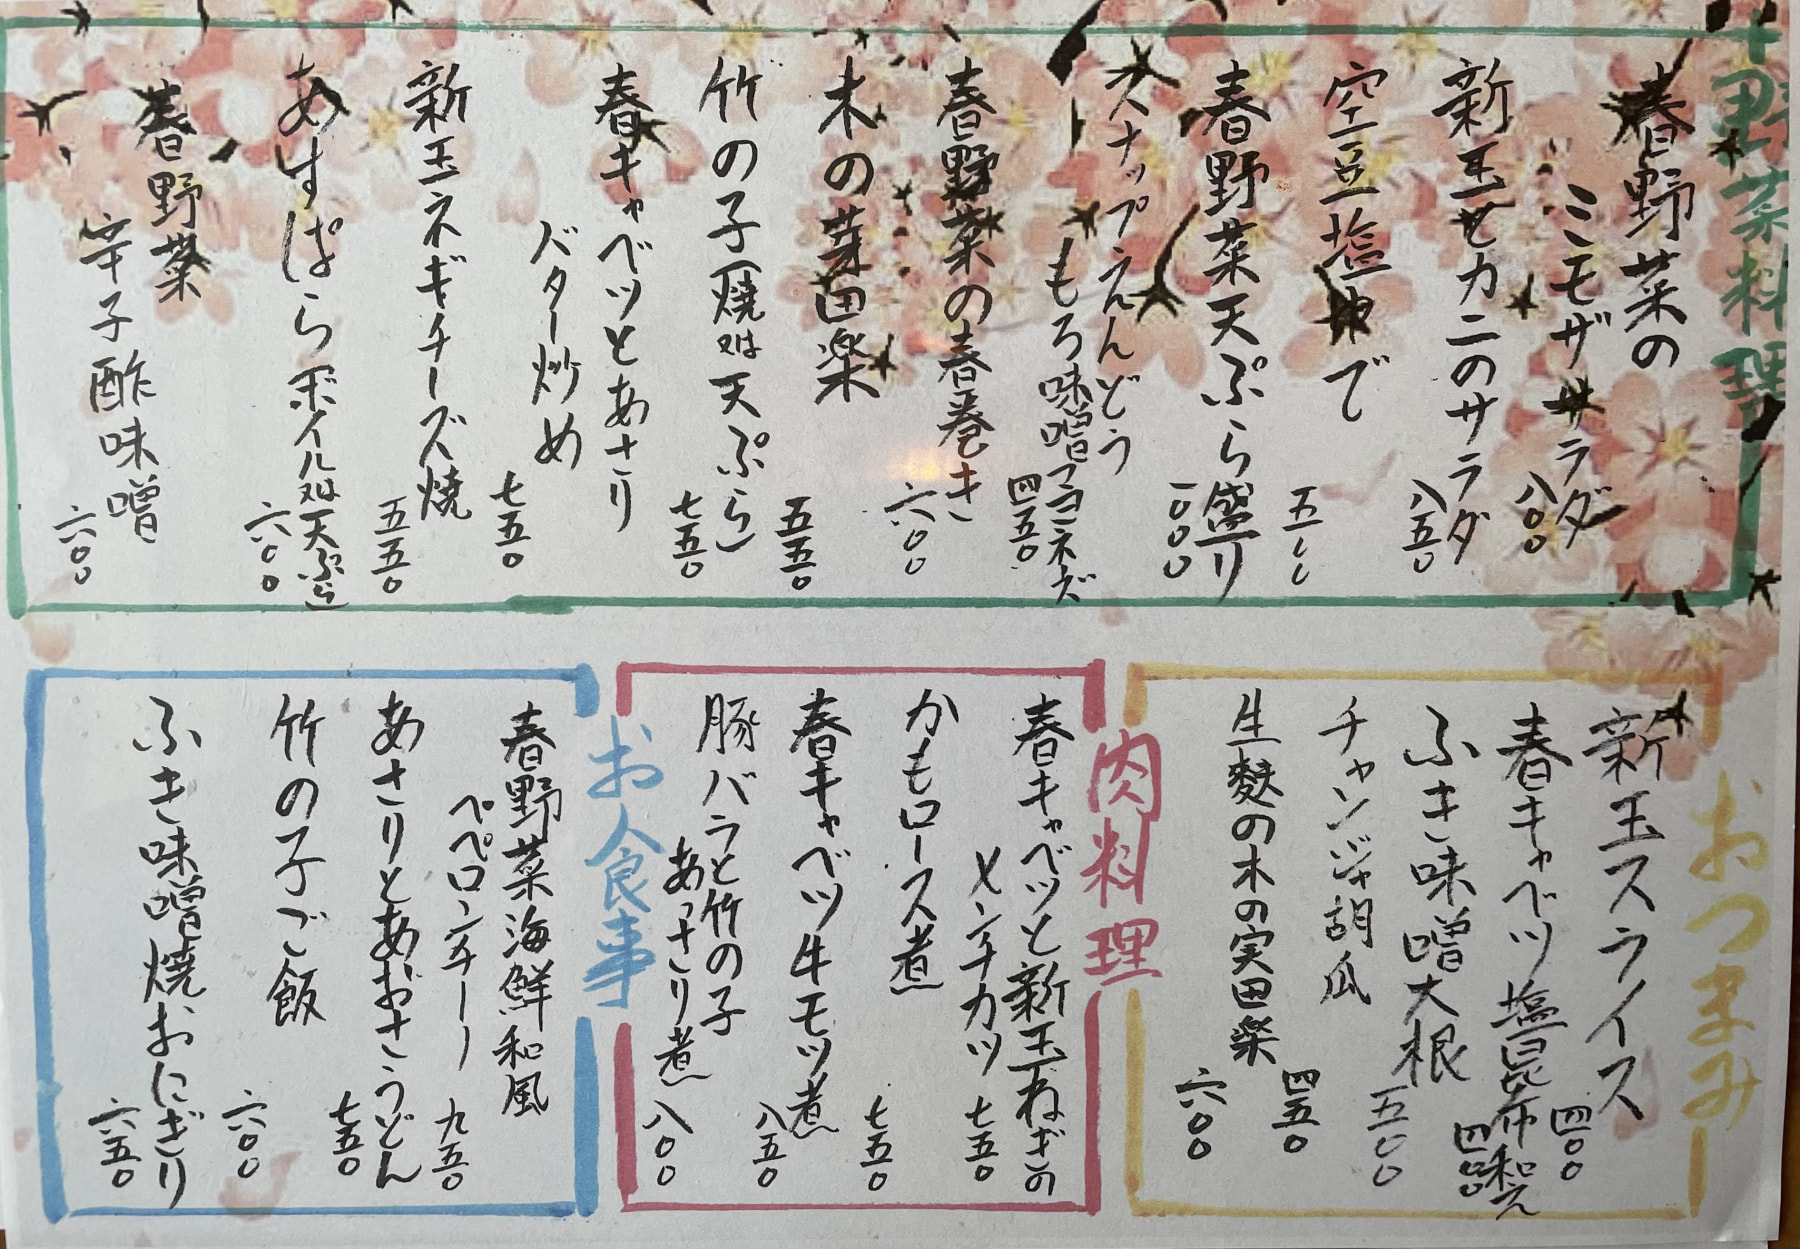 野菜料理
春野菜の
ミモザサラダ
八〇〇
新玉とカニのサラダ
八五〇
空豆塩ゆで
五〇〇
春野菜天ぷら盛り
一〇〇〇
スナップえんどう
もろ味噌マヨネーズ
四五〇
春野菜の春巻き
六〇〇
木の芽田楽
五五〇
竹の子(焼又は天ぷら)
七五〇
春キャベツとあさり
バター炒め
七五〇
新玉ネギチーズ焼
五五〇
あすぱら(ボイル又は天ぷら)
六〇〇
春野菜
辛子酢味噌
六〇〇
おつまみ
新玉スライス
四〇〇
春キャベツ塩昆布和え
四〇〇
ふき味噌大根
五〇〇
チャンジャ胡瓜
四五〇
生麩の木の実田楽
六〇〇
肉料理
春キャベツと新玉ねぎの
メンチカツ
七五〇
かもロース煮
七五〇
春キャベツ牛モツ煮
八五〇
豚バラと竹の子
あっさり煮
八〇〇
お食事
春野菜海鮮和風
ペペロンチーノ
九五〇
あさりとあおさうどん
七五〇
竹の子ご飯
六〇〇
ふき味噌焼おにぎり
六五〇